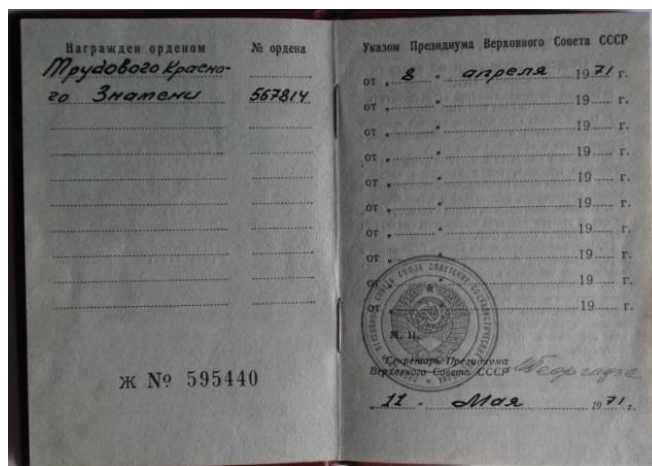 Награжден орденом № ордена
Трудового Красно-
го Знамени 567814
Ж № 595440
Указом Президиума Верховного Совета СССР
от „ 8 " апреля 1971 г.
от „ " 19 г.
от „ " 19 г.
от „ " 19 г.
от „ " 19 г.
от „ " 19 г.
от „ " 19 г.
от „ " 19 г.
от „ " 19 г.
М. П.
Секретарь Президиума
Верховного Совета СССР
Георгадзе
„ 11 " Мая 1971 г.